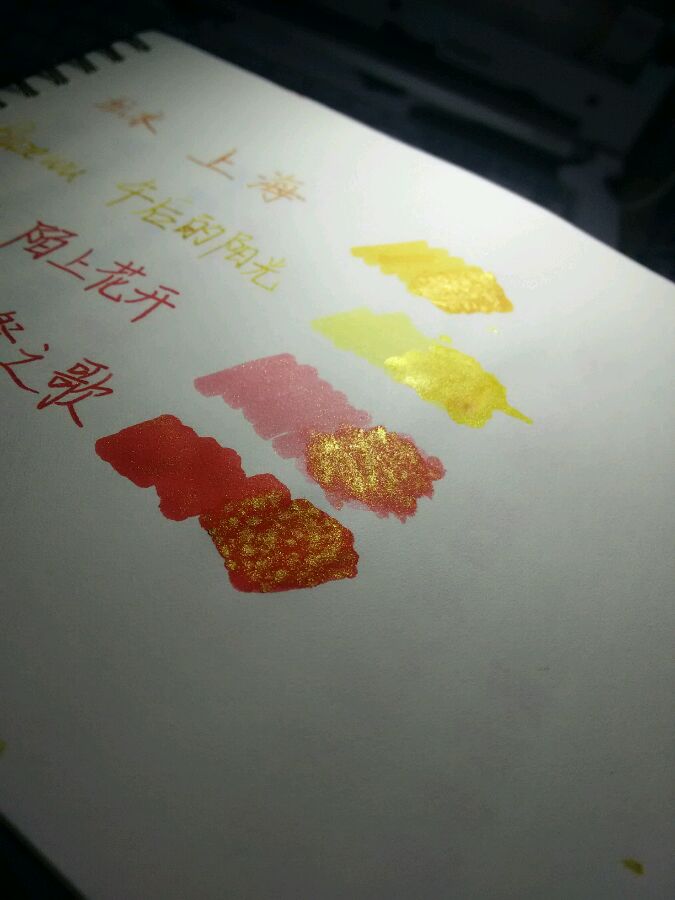 上海
午后的阳光
陌上花开
之歌